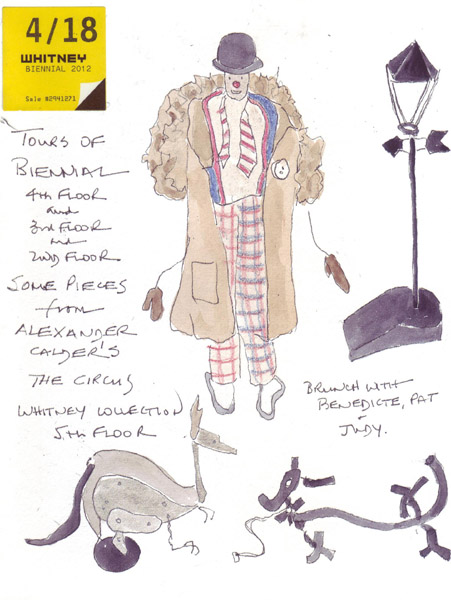 4/18
WHITNEY
BIENNIAL 2012
Sale #2941271
TOURS OF
BIENNIAL
4TH FLOOR
and
3rd FLOOR
and
2ND FLOOR
SOME PIECES
from
ALEXANDER
CALDER'S
THE CIRCUS
WHITNEY COLLECTION
5TH FLOOR
BRUNCH WITH
BENEDICTE, PAT
+
JUDY.